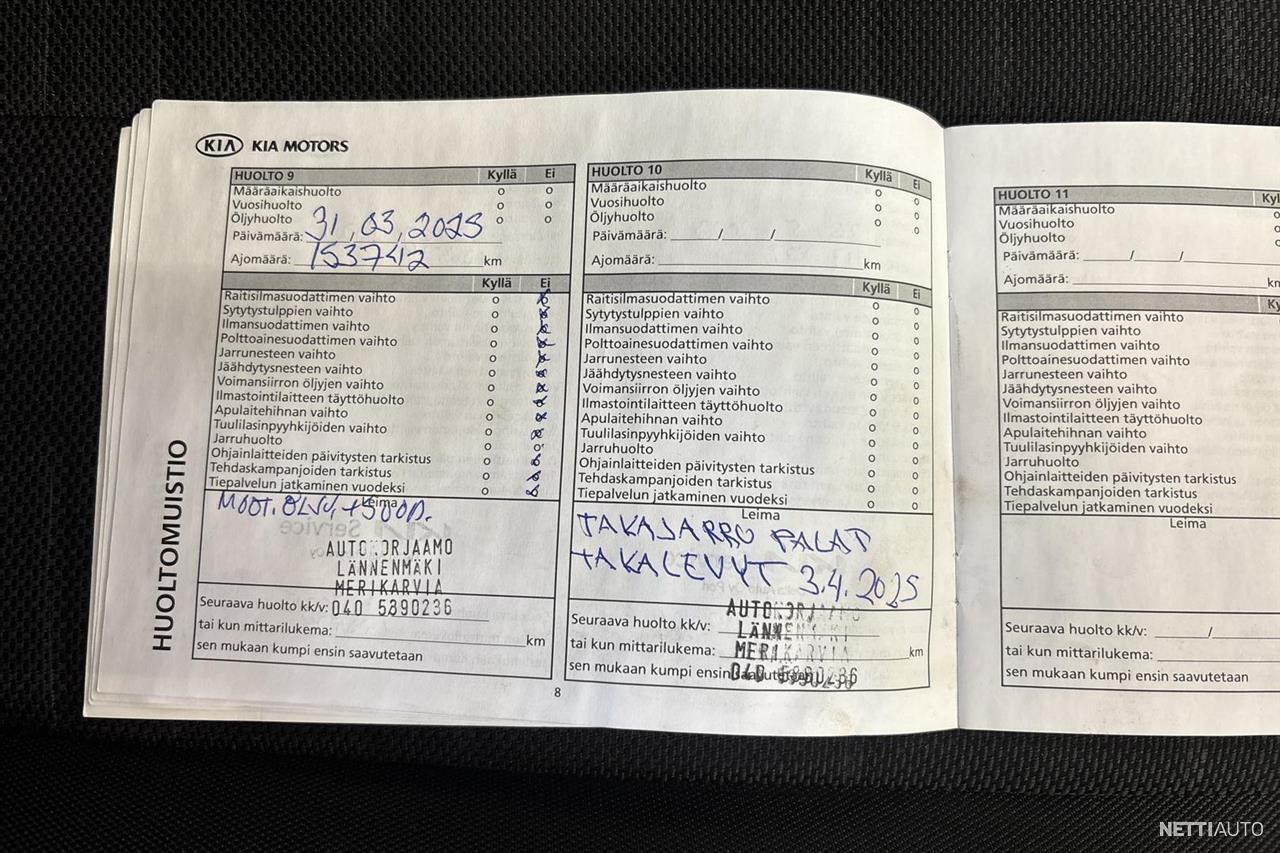 KIA KIA MOTORS
HUOLTOMUISTIO
HUOLTO 9 Kyllä Ei
Määräaikaishuolto o o
Vuosihuolto o o
Öljyhuolto o o
Päivämäärä: 31,03,2025
Ajomäärä: 153742 km
Kyllä Ei
Raitisilmasuodattimen vaihto o
Sytytystulppien vaihto o
Ilmansuodattimen vaihto o
Polttoainesuodattimen vaihto o
Jarrunesteen vaihto o
Jäähdytysnesteen vaihto o
Voimansiirron öljyjen vaihto o
Ilmastointilaitteen täyttöhuolto o
Apulaitehihnan vaihto o
Tuulilasinpyyhkijöiden vaihto o
Jarruhuolto o
Ohjainlaitteiden päivitysten tarkistus o
Tehdaskampanjoiden tarkistus o
Tiepalvelun jatkaminen vuodeksi o
Leima
AUTOKORJAAMO
LÄNNENMÄKI
MERIKARVIA
Seuraava huolto kk/v: 040 5890236
tai kun mittarilukema: km
sen mukaan kumpi ensin saavutetaan
8
HUOLTO 10 Kyllä Ei
Määräaikaishuolto o o
Vuosihuolto o o
Öljyhuolto o o
Päivämäärä: / /
Ajomäärä: km
Kyllä Ei
Raitisilmasuodattimen vaihto o o
Sytytystulppien vaihto o o
Ilmansuodattimen vaihto o o
Polttoainesuodattimen vaihto o o
Jarrunesteen vaihto o o
Jäähdytysnesteen vaihto o o
Voimansiirron öljyjen vaihto o o
Ilmastointilaitteen täyttöhuolto o o
Apulaitehihnan vaihto o o
Tuulilasinpyyhkijöiden vaihto o o
Jarruhuolto o o
Ohjainlaitteiden päivitysten tarkistus o o
Tehdaskampanjoiden tarkistus o o
Tiepalvelun jatkaminen vuodeksi o o
Leima
TAKAJARRU PALAT
TAKALEVYT 3.4.2025
AUTOKORJAAMO
Seuraava huolto kk/v: LÄNNENMÄKI
tai kun mittarilukema: MERIKARVIA km
sen mukaan kumpi ensin saavutetaan 040 5890236
HUOLTO 11
Määräaikaishuolto
Vuosihuolto
Öljyhuolto
Päivämäärä: / /
Ajomäärä:
Raitisilmasuodattimen vaihto
Sytytystulppien vaihto
Ilmansuodattimen vaihto
Polttoainesuodattimen vaihto
Jarrunesteen vaihto
Jäähdytysnesteen vaihto
Voimansiirron öljyjen vaihto
Ilmastointilaitteen täyttöhuolto
Apulaitehihnan vaihto
Tuulilasinpyyhkijöiden vaihto
Jarruhuolto
Ohjainlaitteiden päivitysten tarkistus
Tehdaskampanjoiden tarkistus
Tiepalvelun jatkaminen vuodeksi
Leima
Seuraava huolto kk/v: /
tai kun mittarilukema:
sen mukaan kumpi ensin saavutetaan
NETTIAUTO